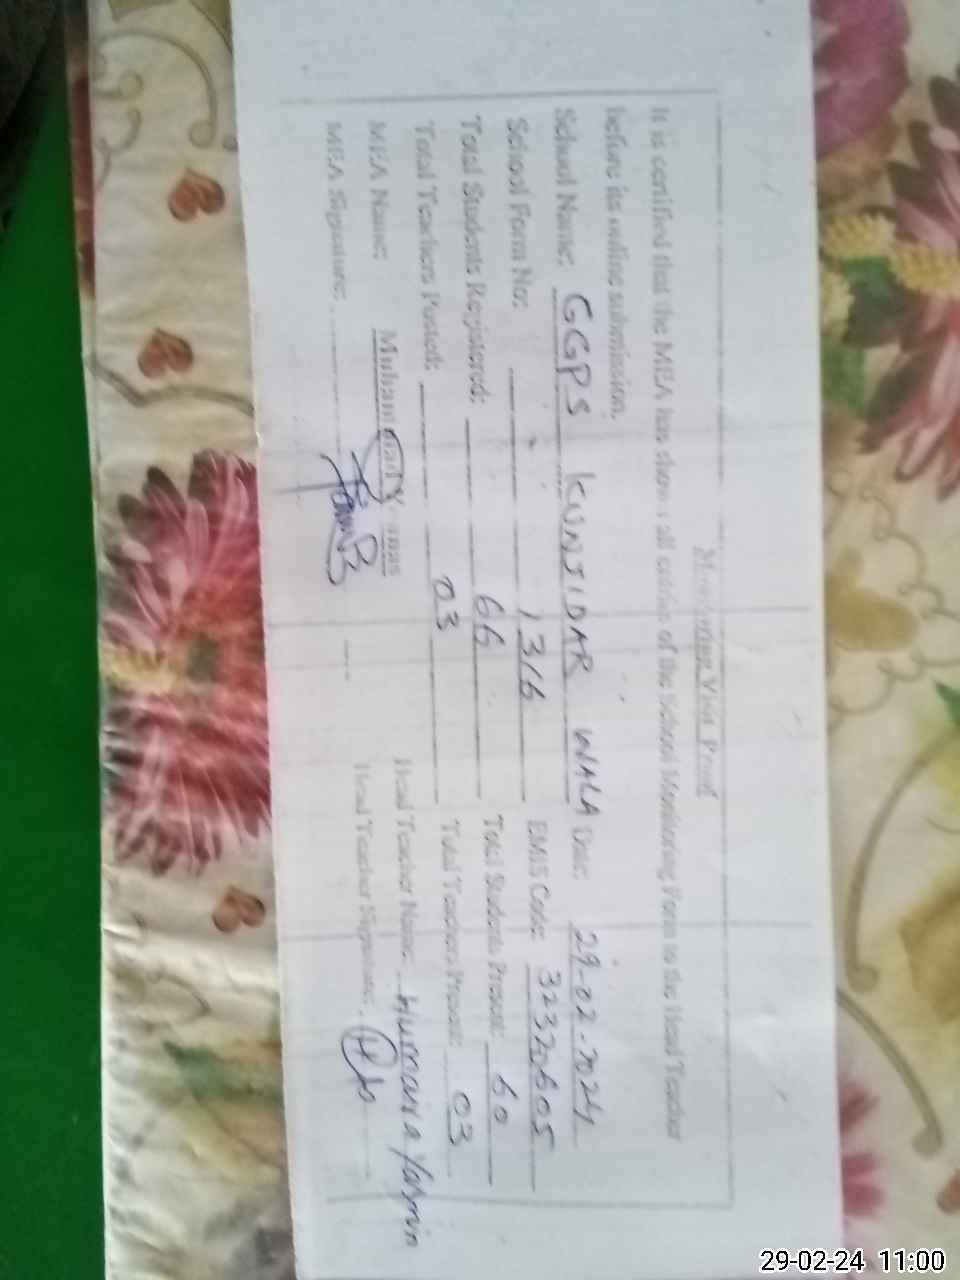 Monitoring Visit Proof
It is certified that the MEA has shown all entries of the School Monitoring Form to the Head Teacher
before its online submission.
School Name: GGPS KUNJIDAR WALA Date: 29-02-2024
School Form No: 1316 EMIS Code: 32320605
Total Students Registered: 66 Total Students Present: 60
Total Teachers Posted: 03 Total Teachers Present: 03
MEA Name: Muhammad Head Teacher Name: Humaira Yasmin
MEA Signature: Head Teacher Signature:
29-02-24 11:00